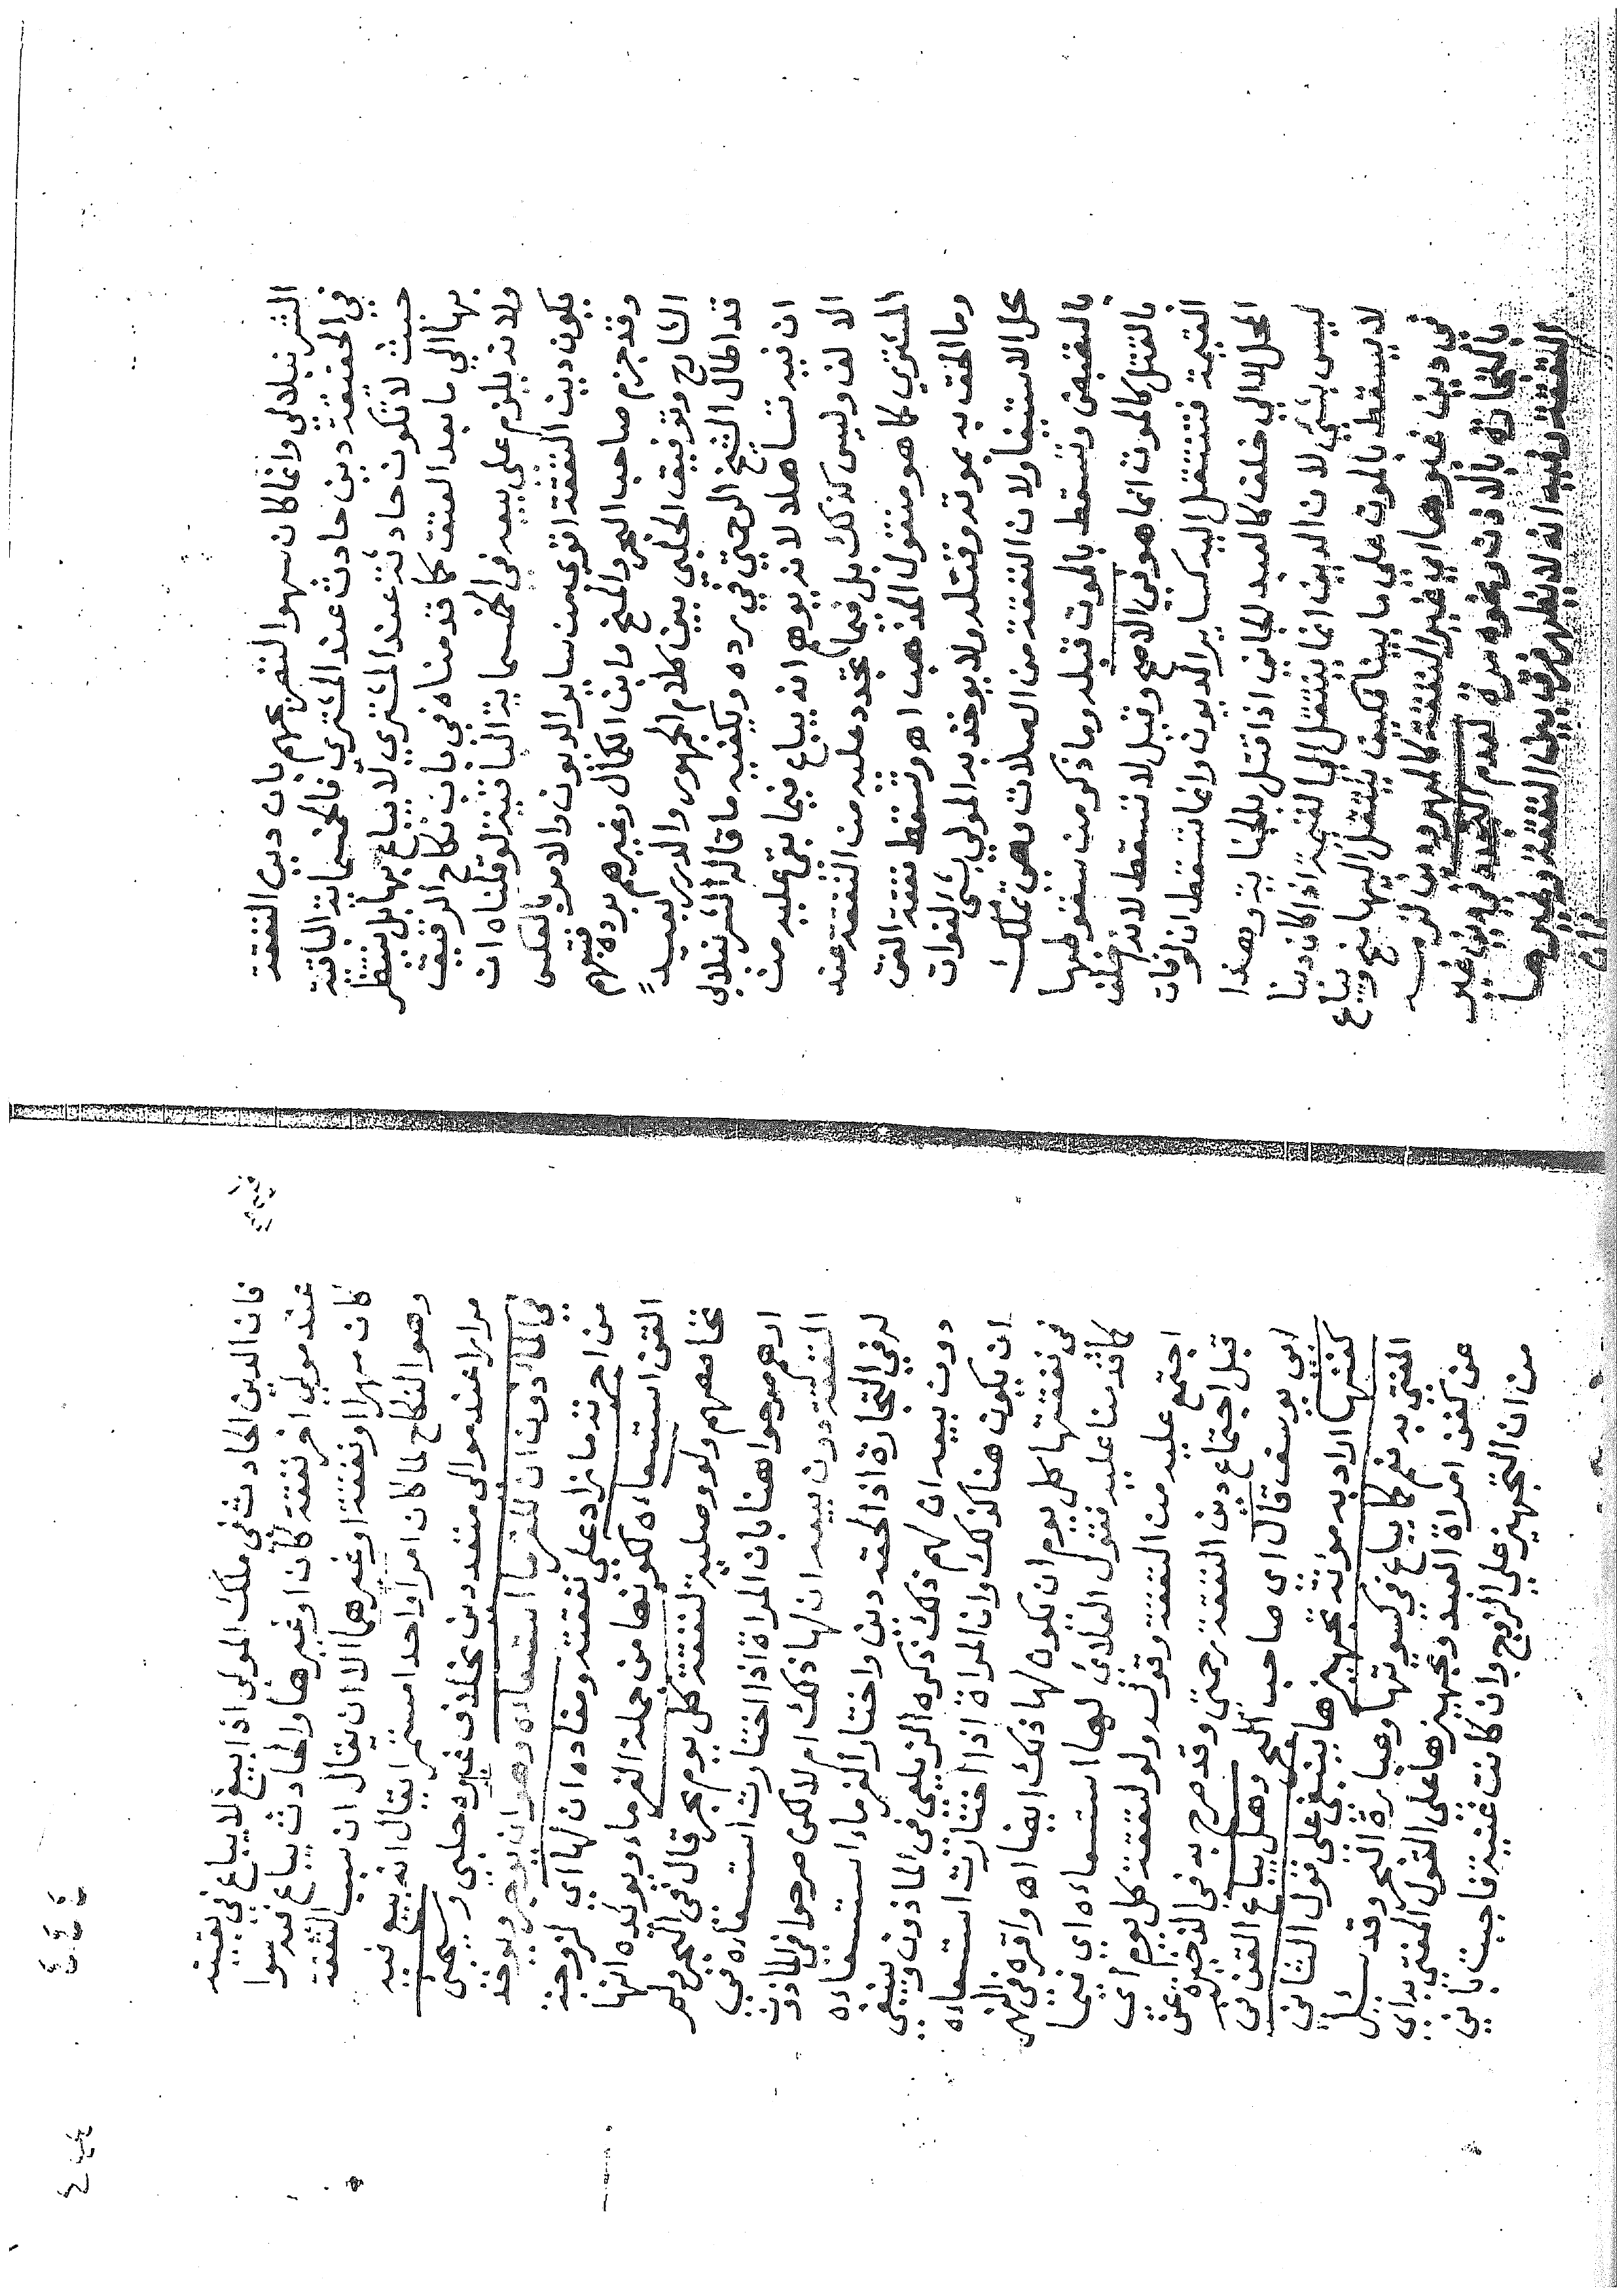 الشرنبلالي وانما كان سهوا لتصريحهم بان دين النفقة
في الحقيقة دين حادث عند المشتري فالخمسماية الباقية
حيث لا تكون حادثة عند المشتري لا يباع بها بل ينتظر
بها الي ما بعد العتق كما قدمناه في باب نكاح الرقيق
ولانه يلزم علي بيعه في الخمسماية الباقية لو قلناه ان
يكون دين النفقة اقوي من ساير الديون والامر بالعكس
وقد جزم صاحب البحر والمنح وابن الكمال وغيرهم برده
الشارح وتوفيق الحلبي بين كلام الجمهور والدرر بعيد
قد اطال الشيخ الرحمتي في رده ويكفيه ما قاله الشرنبلالي
ان فيه تساهلا لانه يوهم انه يباع فيما بقي عليه من
الالف وليس كذلك بل فيما يتجدد عليه من النفقة عند
المشتري كما هو منقول المذهب اهـ وتسقط نفقة القن
وما الحق به بموته وقتله ولا يوخذ به المولي بشي لفوات
محل الاستيفا ولان النفقة من الصلات وهي تملك
بالقبض وتسقط بالموت قبله وما ذكر من سقوطها
بالقتل كالموت انما هو في الاصح وقيل لا تسقط لانه اخلف
القيمة فتنتقل اليه كساير الديون وانما تسقط ان لو فات
المحل لا الي خلف كالعبد الجاني اذا قتل بالجناية وهذا
ليس بشي لان الدين انما ينتقل الي القيمة اذا كان دينا
لا يسقط بالموت علي ما بينا كيف ينتقل اليها منح ويباع
في دين غيرها اي غير النفقة كالمهر وما لزمه
بالتجارة بالاذن ونحوه مرة لعدم التجدد في دين غير
النفقة وفيه انه لا يظهر فرق بين النفقة وغيرها
فان
فان الدين الحادث في ملك المولي اذا بيع لا يباع في بقيته
عند مولي اخر نفقة كان او غيرها والحادث يباع فيه سوا
كان مهرا او نفقة او غيرهما الا ان يقال ان سبب النفقة
وهو النكاح لما كان امرا واحدا مستمرا يقال انه بيع فيه
مرارا عند موالي متعددين بخلاف غيره حلبي وسيجئ
في المأذون ان للغرما استسعاءه وهو ان يوجر ويوخذ
من اجرته ما زاد علي نفقته ومفاده ان لها اي لزوجة
القن استسعاءه لكونها من جملة الغرماء ويوكده انها
تخاصصهم ولو وصلية لنفقة كل يوم بحر قال في البحر ولم
ارهم صرحوا هنا بان المراة اذا اختارت استسعاءه في
النفقة دون بيعه ان لها ذلك ام لا لكن صرحوا في الماذون
له في التجارة اذا لحقه دين واختار الغرماء استسعاءه
دون بيعه ان لهم ذلك ذكره الزيلعي في الماذون وينبغي
ان يكون هنا كذلك وان المراة اذا اختارت استسعاءه
في نفقتها كل يوم ان يكون لها ذلك ايضا اهـ واقره في النهر
كما قدمنا عليه فقول العلائي لها استسعاءه اي فيما
اجتمع عليه من النفقة وقوله ولو لنفقة كل يوم اي
قبل اجتماع دين النفقة رحمتي وقد صرح به في الذخيرة عن
ابي يوسف قال اي صاحب البحر وهل يباع القن في
كفنها اراد به مؤنة تجهيزها ينبغي علي قول الثاني
المفتي به نعم كما يباع في كسوتها وعبارة البحر وقد سئل
عن كفن امراة العبد وتجهيزها على القول المفتي به اي
من ان التجهيز علي الزوج وان كانت غنية فاجبت باني